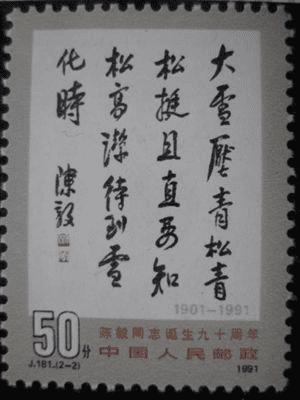 大雪壓青松青
松挺且直要知
松高潔待到雪
化時 陳毅
1901-1991
50分
陈毅同志诞生九十周年
中国人民邮政
J.181.(2-2)
1991